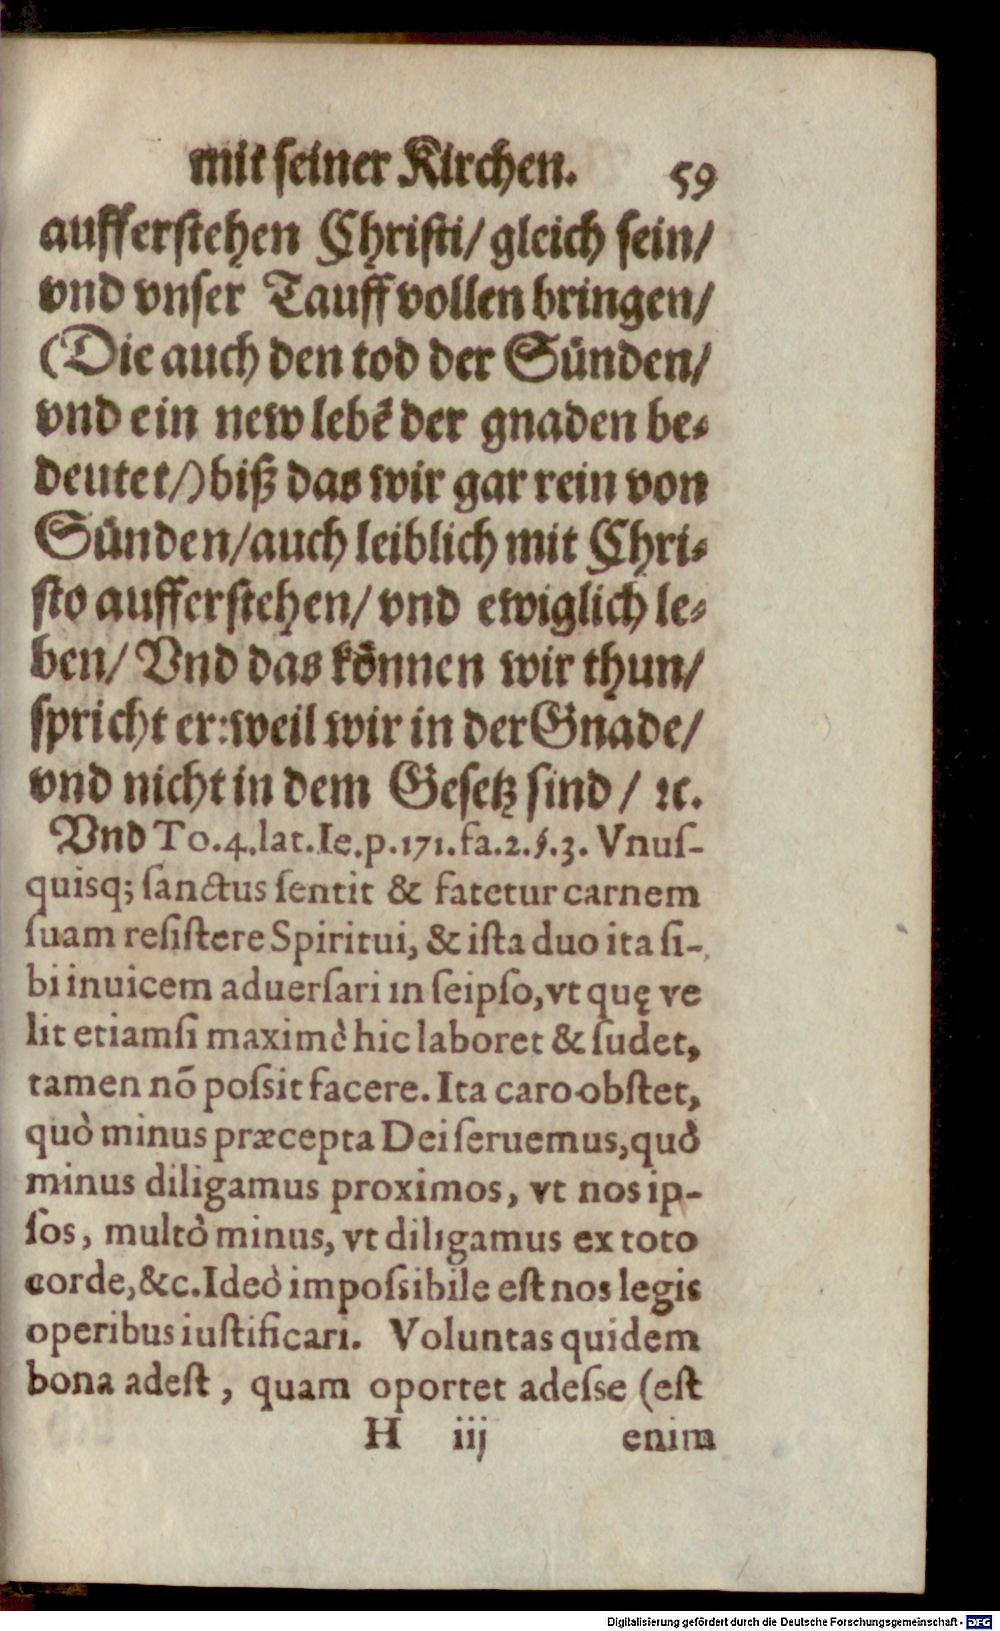 mit seiner Kirchen. 59
aufferstehen Christi/ gleich sein/
vnd vnser Tauff vollen bringen/
(Die auch den tod der Sünden/
vnd ein new lebē der gnaden be-
deutet/) biß das wir gar rein von
Sünden/auch leiblich mit Chri-
sto aufferstehen/ vnd ewiglich le-
ben/ Vnd das können wir thun/
spricht er: weil wir in der Gnade/
vnd nicht in dem Gesetz sind / ꝛc.
Vnd To.4.lat.Ie.p.171.fa.2.§.3. Vnuſ-
quisq; ſanctus ſentit & fatetur carnem
ſuam reſiſtere Spiritui, & iſta duo ita ſi-
bi inuicem aduerſari in ſeipſo, vt quę ve
lit etiamſi maximè hic laboret & ſudet,
tamen nō poſsit facere. Ita caro obſtet,
quò minus præcepta Dei ſeruemus, quò
minus diligamus proximos, vt nos ip-
ſos, multò minus, vt diligamus ex toto
corde, &c. Ideò impoſsibile eſt nos legis
operibus iuſtificari. Voluntas quidem
bona adeſt, quam oportet adeſse (eſt
H iij enim
Digitalisierung gefördert durch die Deutsche Forschungsgemeinschaft - DFG